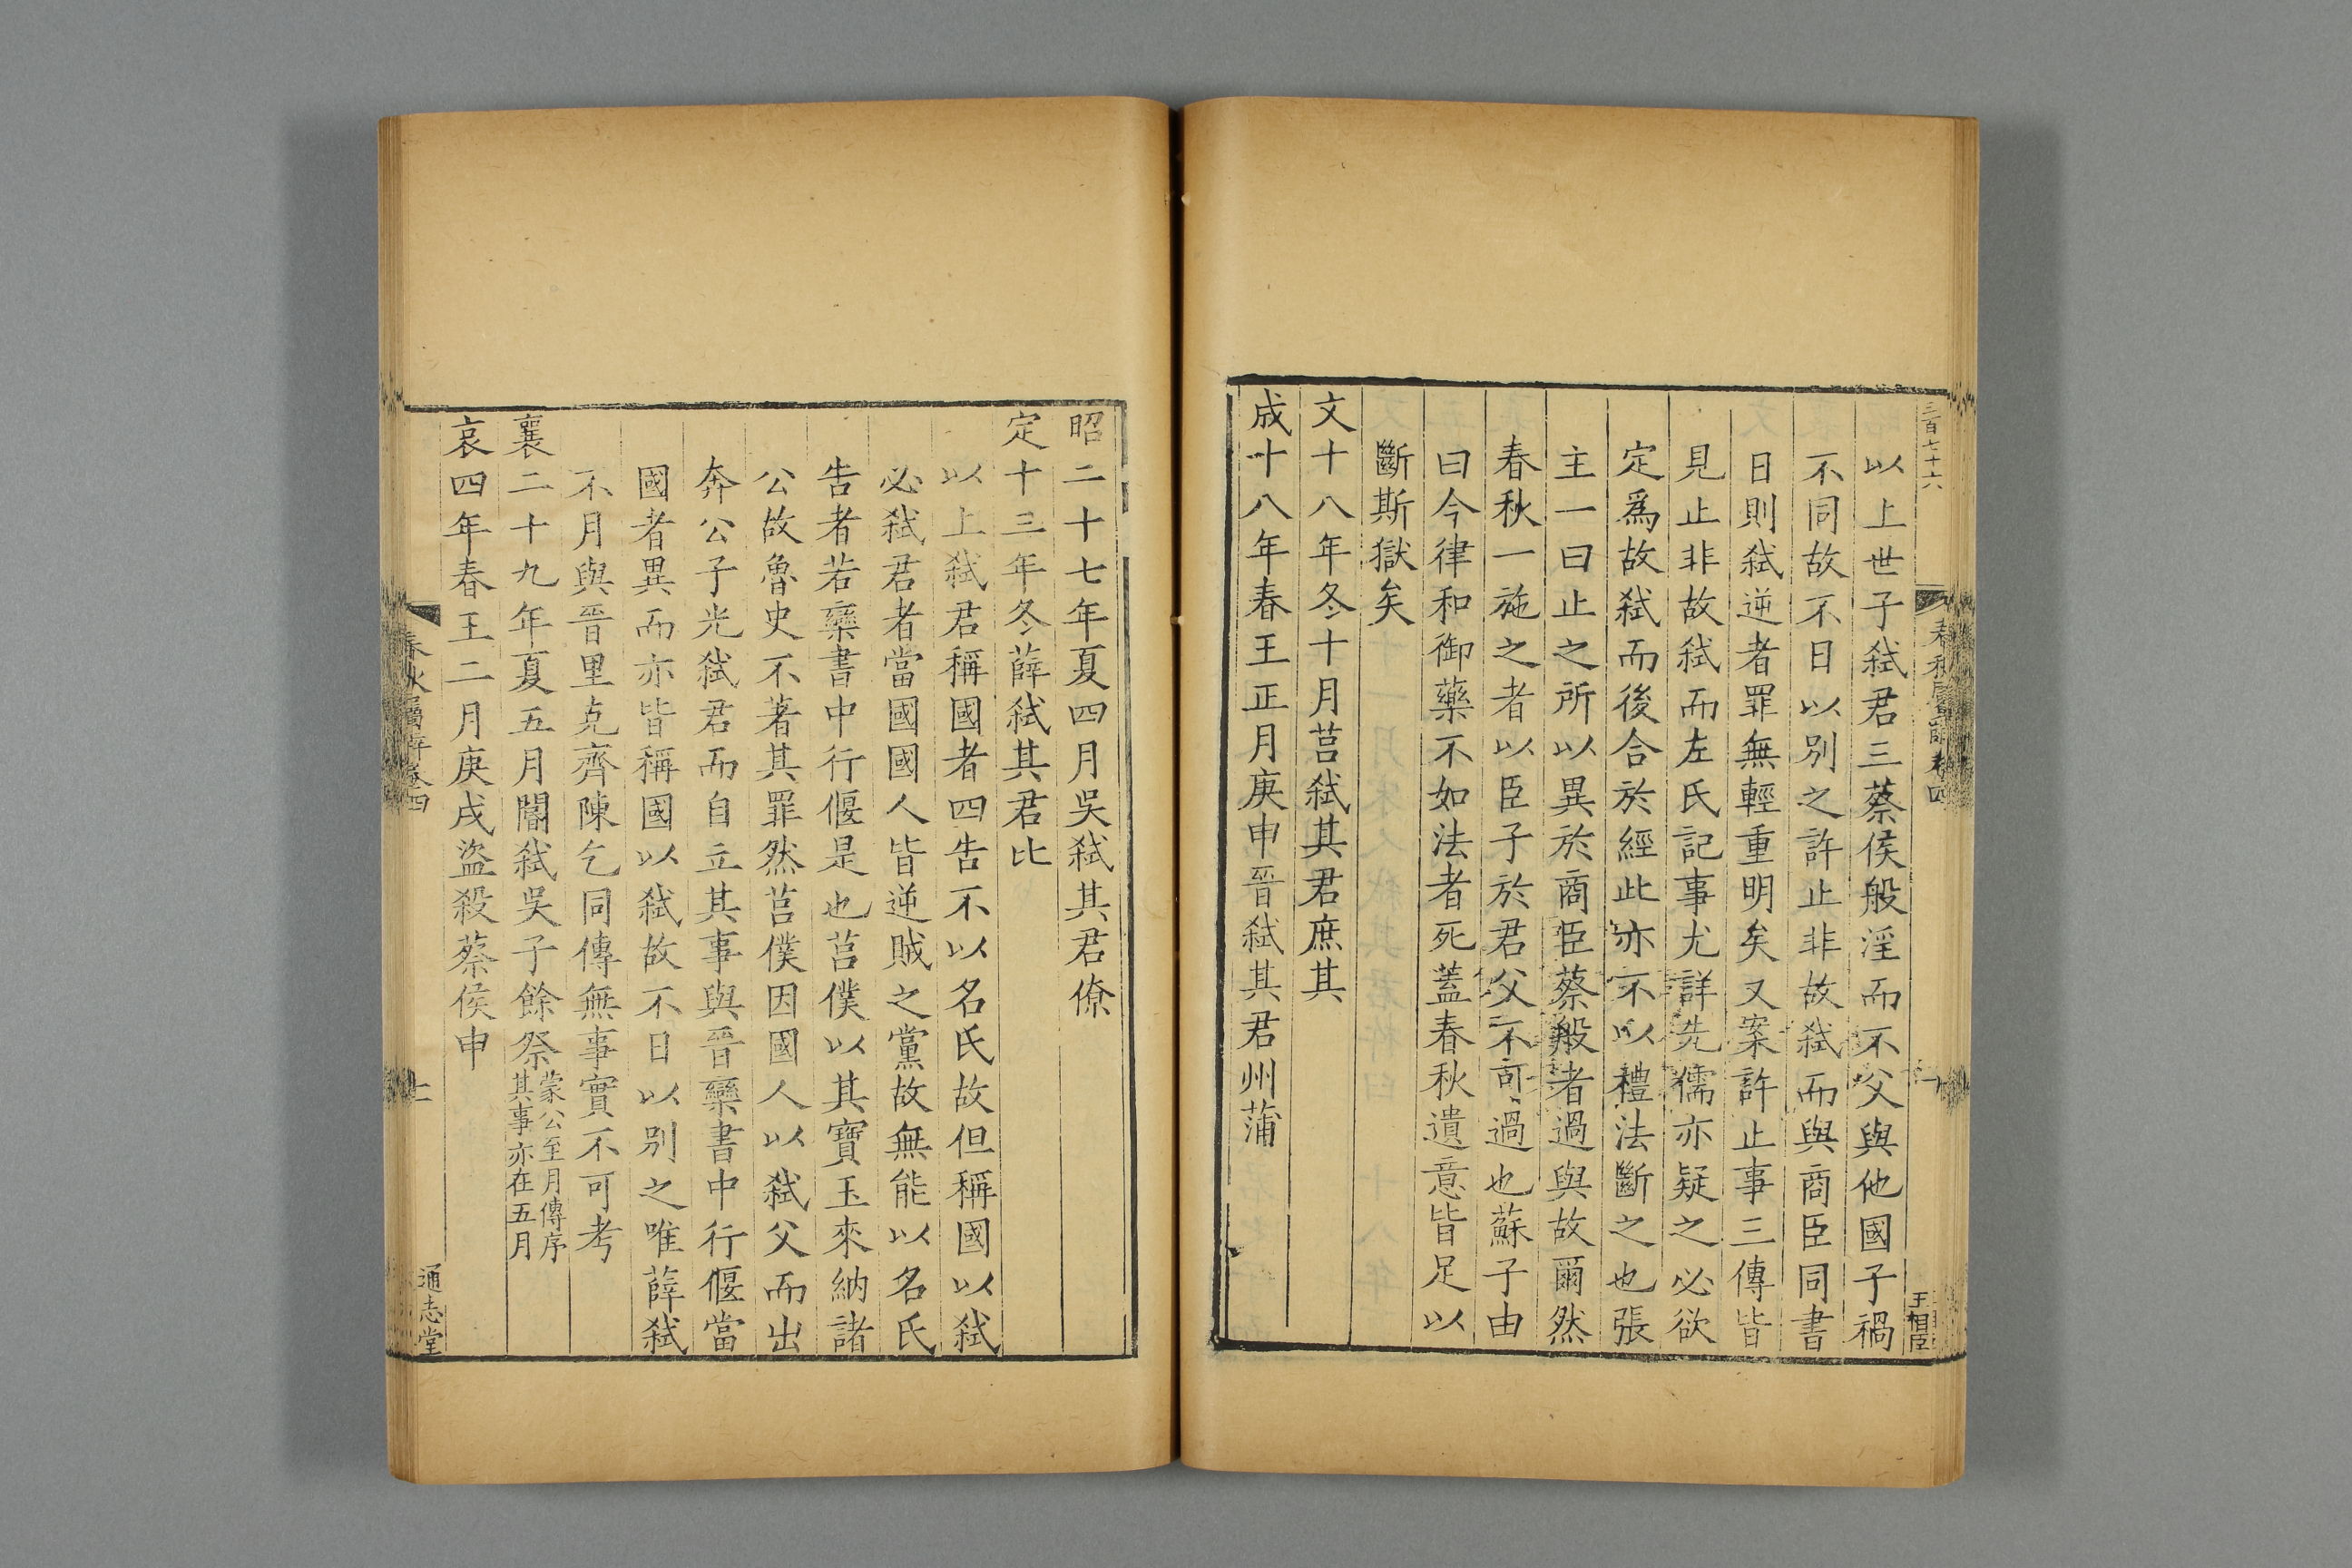 三百七十六
春秋屬辭卷四
王相臣
以上世子弑君三蔡侯般淫而不父與他國子禍
不同故不日以別之許止非故弑而與商臣同書
日則弑逆者罪無輕重明矣又案許止事三傳皆
見止非故弑而左氏記事尤詳先儒亦疑之必欲
定爲故弑而後合於經此亦不以禮法斷之也張
主一曰止之所以異於商臣蔡般者過與故爾然
春秋一施之者以臣子於君父不可過也蘇子由
曰今律和御藥不如法者死蓋春秋遺意皆足以
斷斯獄矣
文十八年冬十月莒弑其君庶其
成十八年春王正月庚申晉弑其君州蒲
昭二十七年夏四月吳弑其君僚
定十三年冬薛弑其君比
以上弑君稱國者四告不以名氏故但稱國以弑
必弑君者當國國人皆逆賊之黨故無能以名氏
告者若欒書中行偃是也莒僕以其寶玉來納諸
公故魯史不著其罪然莒僕因國人以弑父而出
奔公子光弑君而自立其事與晉欒書中行偃當
國者異而亦皆稱國以弑故不日以別之唯薛弑
不月與晉里克齊陳乞同傳無事實不可考
襄二十九年夏五月閽弑吳子餘祭蒙公至月傳序其事亦在五月
哀四年春王二月庚戌盜殺蔡侯申
春秋屬辭卷四
通志堂